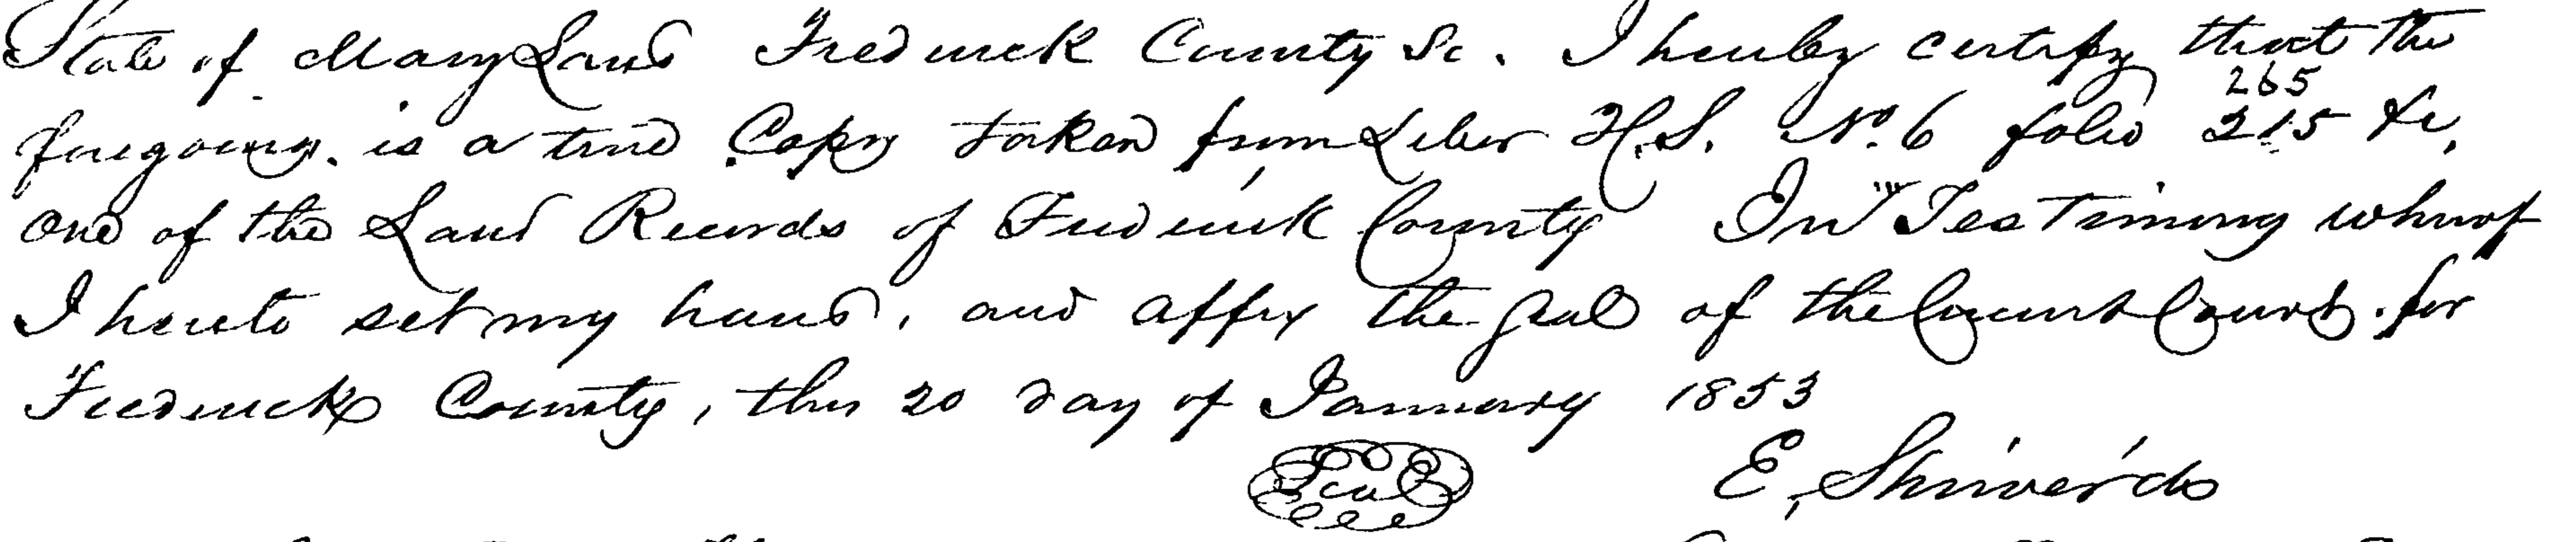 State of Maryland Frederick County Sc. I hereby certify that the
265
foregoing. is a true Copy taken from Liber H.S. No. 6 folio 215 &c,
one of the Land Records of Frederick County In Testimony whereof
I hereto set my hand, and affix the Seal of the Circuit Court. for
Frederick County, this 20 day of January 1853
Seal
E, Shriver